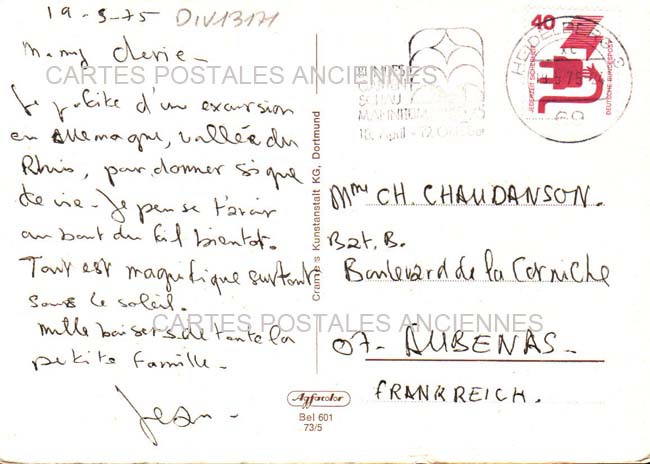 19-5-75 DIV13171
Mamy cherie -
CARTES POSTALES ANCIENNES
Je profite d'un excursion
en Allemagne, vallée du
Rhin, pour donner signe
de vie - Je pense t'avoir
au bout du fil bientôt.
Tout est magnifique surtout
sous le soleil.
Mille baisers de toute la
CARTES POSTALES ANCIENNES
petite famille -
Jean -
Cramers Kunstanstalt KG, Dortmund
Agfacolor
Bel 601
73/5
BUNDES
GARTEN
SCHAU
MANNHEIM
18. April - 19. Oktober
HEIDELBERG
69
40
JEDERZEIT SICHERHEIT
DEUTSCHE BUNDESPOST
Mme CH. CHAUDANSON.
Bat. B.
Boulevard de la Corniche
07- AUBENAS -
FRANKREICH.